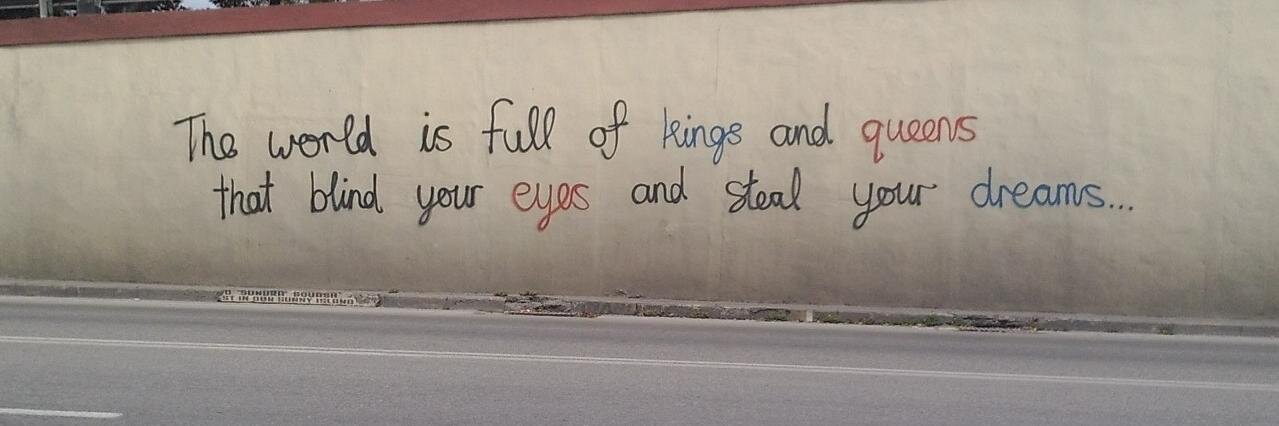 The world is full of kings and queens
that blind your eyes and steal your dreams...
"SUNORA" SQUASH
ST IN OUR SUNNY ISLAND